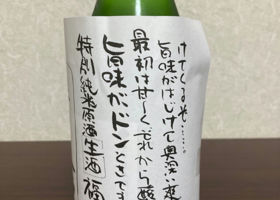 けてくるぞ……
旨味がはじけて奥深い変
最初は甘〜くそれから酸
旨味がドンときて
特別純米原酒生酒福